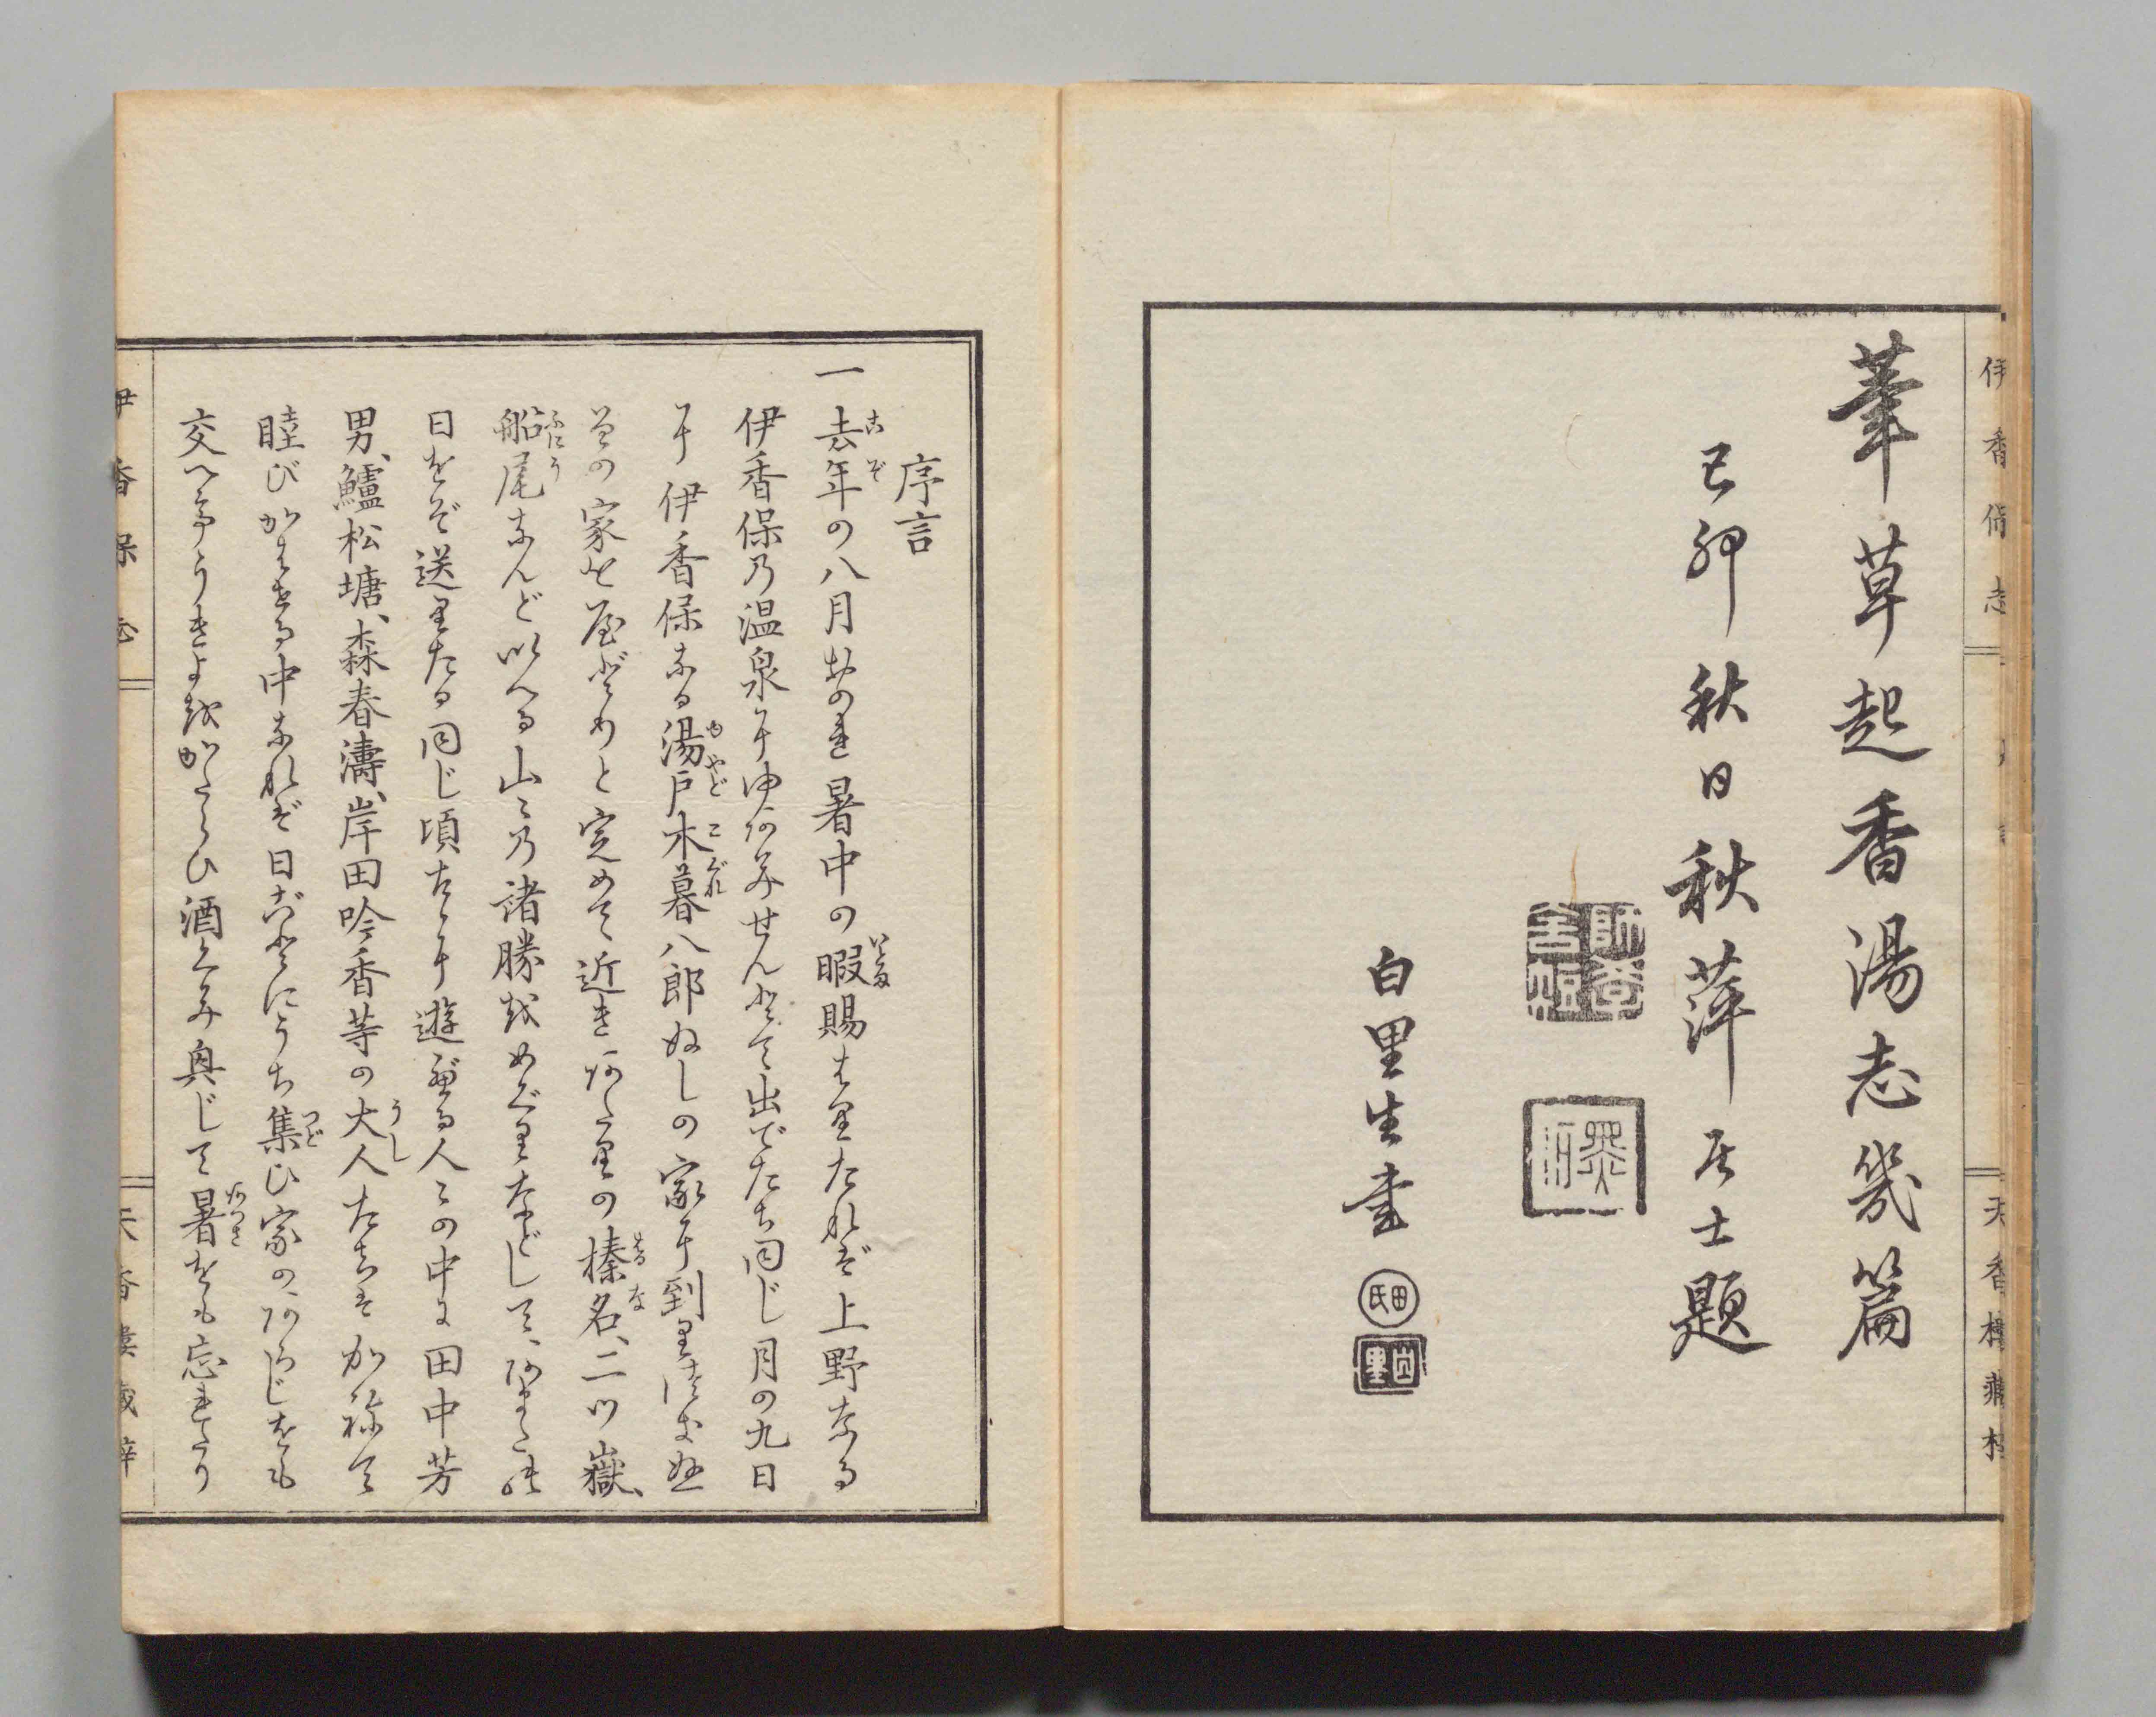 筆草起香湯志幾篇
己卯秋日秋萍居士題
白里生書
田氏
伊香保志
序言
一去年の八月おのれ暑中の暇賜はりたれば上野なる
伊香保乃温泉にゆあみせんとて出でたち同じ月の九日
に伊香保なる湯戸木暮八郎ぬしの家に到り
の家を屋どりと定めて近きあたりの榛名、二ツ嶽、
船尾なんどいへる山々乃諸勝をめぐりなどして、あまた
日をぞ送りたる同じ頃たに遊べる人々の中に田中芳
男、鱸松塘、森春濤、岸田吟香等の大人たちはかねて
睦びかはせる中なれば日ごとにうち集ひ家のあるじをも
交へてうきよをかたらひ酒くみ興じて暑さをも忘れたり
伊香保志